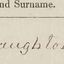 nd Surname.
aughton